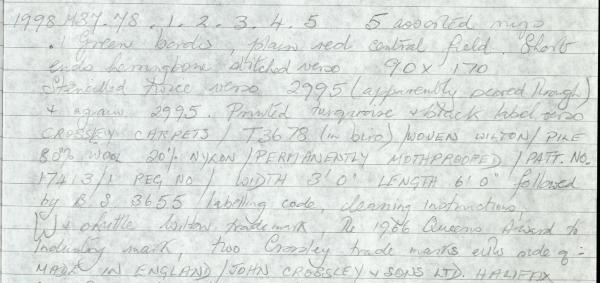 1998 M37.78 .1.2.3.4.5 5 assorted rugs
.1 Green border, plain red central field. Short
ends herringbone stitched verso 90 x 170
Stencilled twice verso 2995 (apparently scored through)
+ again 2995. Printed turquoise + black label verso
CROSSLEY CARPETS / T3678 (in biro) / WOVEN WILTON / PILE
80% WOOL 20% NYLON / PERMANENTLY MOTHPROOFED / PATT. NO.
17413/1 REG NO / WIDTH 3' 0" LENGTH 6' 0" followed
by B.S 3655 labelling code, cleaning instructions,
W + shuttle Wilton trademark, The 1966 Queens Award to
Industry mark, two Crossley trade marks either side of :-
MADE IN ENGLAND / JOHN CROSSLEY & SONS LTD. HALIFAX